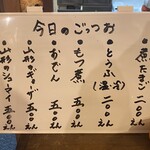 今日のごっつお
煮たまご 一〇〇えん
とうふ(温・冷) 二〇〇えん
もつ煮 五〇〇えん
おでん 五〇〇えん
山形のギョーザ 五〇〇えん
山形のシューマイ 五〇〇えん